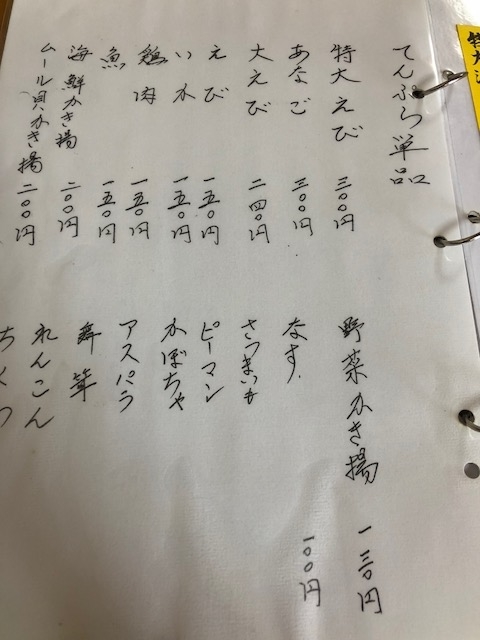 てんぷら単品
特大えび 三〇〇円
あなご 三〇〇円
大えび 二四〇円
えび 一五〇円
いか 一五〇円
鶏肉 一五〇円
魚 一五〇円
海鮮かき揚 二〇〇円
ムール貝かき揚 二〇〇円
野菜かき揚 一三〇円
なす 一〇〇円
さつまいも
ピーマン
かぼちゃ
アスパラ
舞茸
れんこん